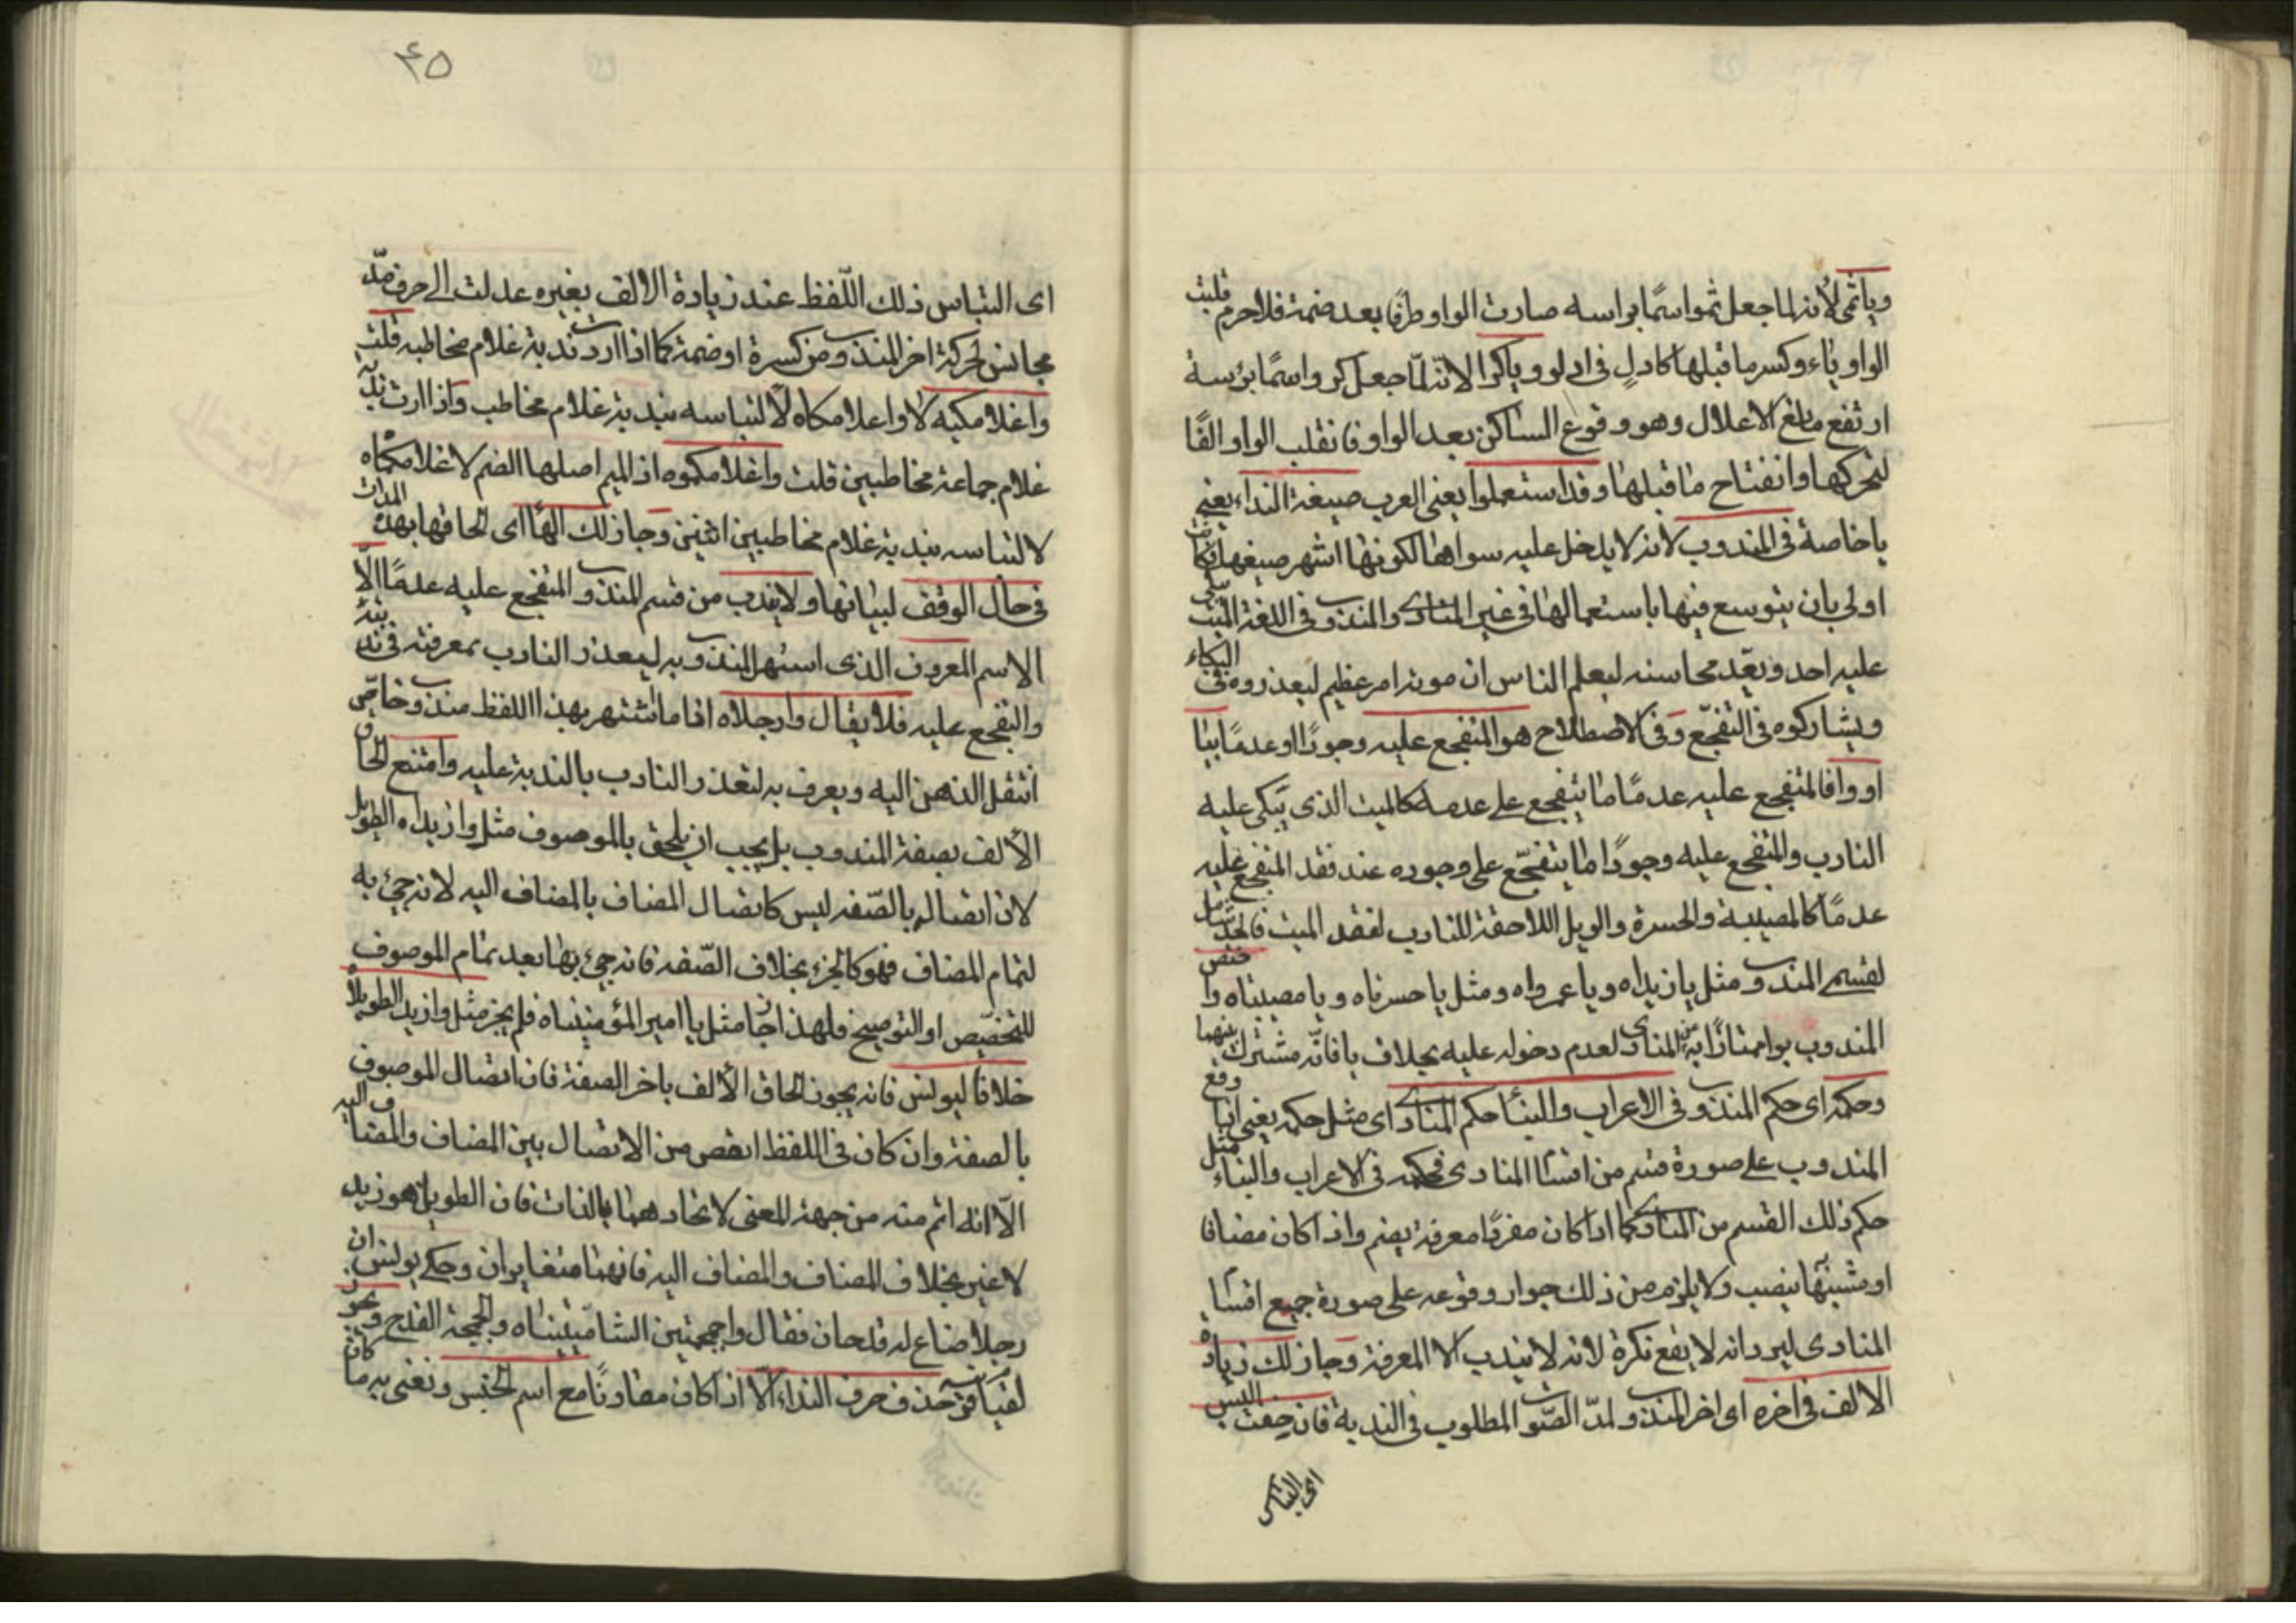 ويا ثمى لانه لما جعل ثمو اسمًا براسه صارت الواو طرفًا بعد ضمة فلا جرم قلبت
الواو ياء وكسر ما قبلها كادلٍ فى ادلو ويا كرا لانه لمّا جعل كرو اسمًا برٔسه
ارتفع مانع الاعلال وهو وقوع الساكن بعد الواو فانقلب الواو الفًا
لتحركها وانفتاح ما قبلها وقد استعملوا يعنى العرب صيغة النداء يعنى
يا خاصة فى المندوب لانه لا يدخل عليه سواها لكونها اشهر صيغها فكانت
اولى بان يتوسع فيها باستعمالها فى غير المنادى والمندوب فى اللغة الميت يبكى
عليه احد ويعّد محاسنه ليعلم الناس ان موته امر عظيم ليعذروه فى البكاء
ويشاركوه فى التفجّع وفى الاصطلاح هو المتفجع عليه وجودًا او عدمًا بيا
او وا فالمتفجع عليه عدمًا ما يتفجع على عدمه كالميت الذى يبكى عليه
النادب والمتفجع عليه وجودًا ما يتفجّع على وجوده عند فقد المتفجع عليه
عدمًا كالمصيبة والحسرة والويل اللاحقة للنادب لفقد الميت فالحد شامل
لقسمى المندوب مثل يا زيداه ويا عمرواه ومثل يا حسرتاه ويا مصيبتاه واختص
المندوب بوا ممتازًا به عن المنادى لعدم دخوله عليه بخلاف يا فانّه مشترك بينهما
وحكمه اى حكم المندوب فى الاعراب والبنٔا حكم المنادى اى مثل حكمه يعنى اذا وقع
المندوب على صورة قسم من اقسام المنادى فحكمه فى الاعراب والبناء مثل
حكم ذلك القسم من المنادى كما اذا كان مفردًا معرفة يضم واذا كان مضافا
او مشبّهًا ينصب ولا يلزم من ذلك جواز وقوعه على صورة جميع اقسام
المنادى ليرد انه لا يقع نكرة لانه لا يندب الا المعرفة وجاز لك زيادة
الالف فى اخره اى اخر المندوب لمدّ الصّوت المطلوب فى الندبة فان خفت اللبس
اى التباس
٤٥
اى التباس ذلك اللّفظ عند زيادة الالف بغيره عدلت الى حرف مدّ
مجانس لحركة اخر المندوب من كسرة او ضمة كما اذا اردت ندبة غلام مخاطبه قلت
واغلامكيه لا واغلامكاه لالتباسه بندبة غلام مخاطب واذا اردت ندبة
غلام جماعة مخاطبين قلت واغلامكموه اذ الميم اصلها الضم لا غلامكماه
لالتباسه بندبة غلام مخاطبين اثنين وجاز لك الهأ اى الحاقها بهذه المدات
فى حال الوقف لبيانها ولا يندب من قسم المندوب المتفجع عليه عدمًا الّا
الاسم المعروف الذى اشتهر المندوب به ليعذر النادب بمعرفته فى ندبته
والتفجع عليه فلا يقال وا رجلاه اذا ما اشتهر بهذا اللفظ مندوب خاصّ
انتقل الذهن اليه ويعرف به لتعذر النادب بالندبة عليه وامتنع الحاق
الالف بصفة المندوب بل يجب ان يلحق بالموصوف مثل وا زيداه الطويل
لان اتصاله بالصّفه ليس كاتصال المضاف بالمضاف اليه لانه جئ به
لتمام المضاف فهو كالجزء بخلاف الصّفه فانه جئ بها بعد تمام الموصوف
للتخصيص او التوصيح فلهذا جاز مثل يا امير المؤمنيناه فلم يجز مثل وا زيد الطويلاه
خلافا ليونس فانه يجوز الحاق الالف باخر الصفة فان اتصال الموصوف
بالصفة وان كان فى اللفظ انقص من الاتصال بين المضاف والمضاف اليه
الّا انه اتم منه من جهة المعنى لاتحادهما بالذات فان الطويل هو زيد
لا غير بخلاف المضاف والمضاف اليه فانهما متغايران وحكى يونس ان
رجلا ضاع له قدحان فقال وا جمجمتين الشاميتيناه والجمجمة القدح ويجوز
لقيام قرينة حذف حرف النداء الّا اذا كان مقارنًا مع اسم الجنس ونعنى به ما كان